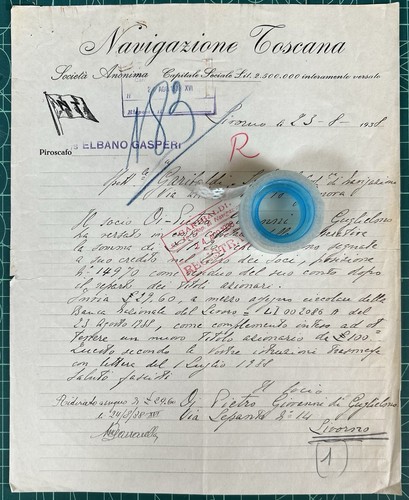 Navigazione Toscana
Società Anonima Capitale Sociale Lit. 2.500.000 interamente versato
AGOSTO XVI
183
Livorno li 23-8-1938
Piroscafo ELBANO GASPERI
R
Spett. Garibaldi di Navigazione
Via
Il socio Di Guglielmo
ha versato in
la somma di segnate
a suo credito nel dei soci, posizione
N. 14970 come residuo del suo conto dopo
il reparto dei titoli azionari.
Invia £ 29.60, a mezzo assegno circolare della
Banca Nazionale del Lavoro = LI 002086 A del
23 Agosto 1938, come complemento intero ad
un nuovo Titolo azionario de £ 100=
Questo secondo le vostre istruzioni
con lettera del 1 Luglio 1938
Saluti fascisti
Il Socio
assegno di £ 29.60
Di Pietro Giovanni di Guglielmo
a 24/8/38-XVI
Via Lepanto N. 14
Livorno
1